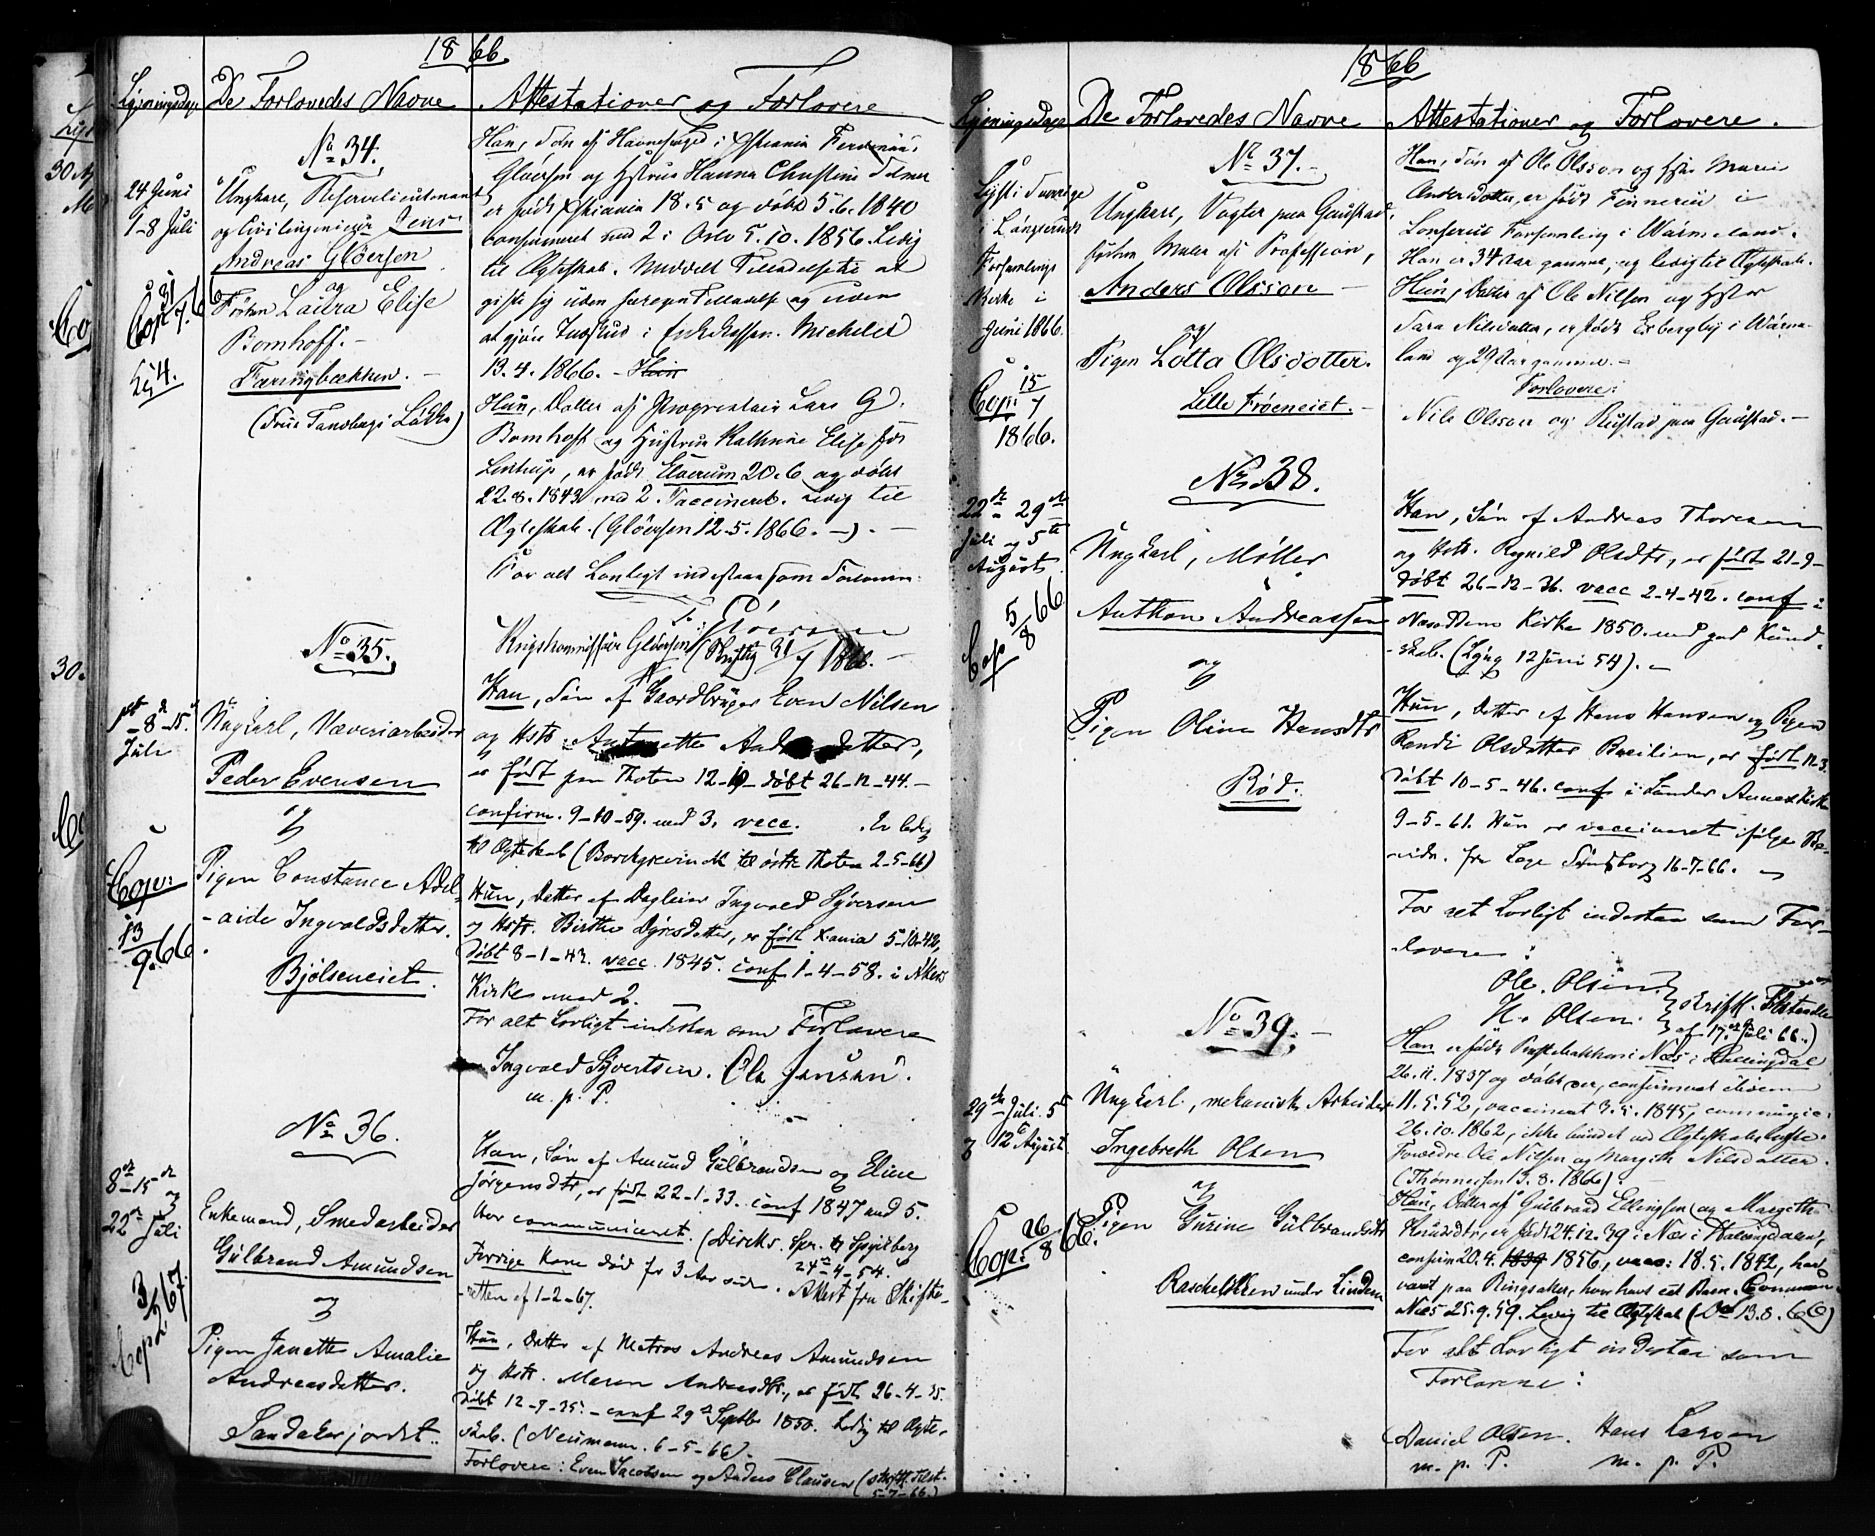 1866
Lysningsdage De Forlovedes Navne Attestationer og Forlovere
24 Juni
1-8 Juli
Cop 31/7 66
No 34.
Ungkarl, Reservelieutenant
og Civilingeniør Jens
Andreas Glöersen
og
Frøken Laura Elise
Bomhoff.
Faringbækken.
(Frue Tandbergs Løkke)
Han, Søn af Havnefoged i Xstiania Ferdinand
Glöersen og Hstrue Hanna Christine
er født i Xstiania 18. 5 og døbt 5. 6. 1840
confirmeret med 2 i Oslo 5. 10. 1856. Ledig
til Ægteskab. Meddelt Tilladelse til at
gifte sig uden Tilladelse og uden
at gjøre Indskud i Enkekassen. Michelet
13. 4. 1866.
Hun, Datter af Proprietair Lars G.
Bomhoff og Hustrue Kathrine Elise før
er født Elverum 20. 6 og døbt
22. 8. 1843 med 2. Vaccineret. Ledig til
Ægteskab. (Glöersen 12. 5. 1866. -).
For alt Lovligt indestaaer som Forlovere:
Krigskommissær Glöersen (Skriftlig 31/7 1866.
1st - 8d - 15d
Juli
Cop:
13/9. 66
No 35.
Ungkarl, Væveriarbeider
Peder Evensen
og
Pigen Constance Adel-
aide Ingvaldsdatter.
Bjølseneiet.
Han, Søn af Gaardbruger Even Nilsen
og Hstr.
er født paa Thoten 12-10- døbt 26-12-44.
confirm. 9-10-59. med 3. vacc. Er ledig
til Ægteskab (Borchgrevink til østre Thoten 2-5-66)
Hun, Datter af Dagleier Ingvald Syversen
og Hstr. Birthe Dyresdatter, er født Xania 5-10-42,
døbt 8-1-43. vacc. 1845. conf 1-4-58. i Akers
Kirke med 2.
For alt Lovligt indestaa som Forlovere
Ingvald Syvertsen. Ole Jensen.
m. p. P.
8de - 15de
og
22de Juli
Cop 3/2 67.
No 36.
Enkemand, Smedarbeider
Gulbrand Amundsen
og
Pigen Janette Amalie
Andreasdatter.
Sandakerjordet.
Han, Søn af Amund Gulbrandsen og Eline
Jørgensdtr, er født 22-1-33. conf 1847 med 5.
har communiceret. (Dircks. Spr. til Spydeberg
24de-4-54.
Forrige Kone død for 3 Aar siden. Attest fra Skifte-
retten af 1-2-67.
Hun, Datter af Matros Andreas Amundsen
og Hstr. Maren Andreasdtr., er født 26-4-35.
døbt 12-7-35. - conf 29de Septbr 1850. Ledig til Ægte-
skab. (Neumann. 6-5-66).
Forlovere: Even Jacobsen og Anders Clausen (skriftl. Tilst.
5-7-66.)
1866
Lysningsdage De Forlovedes Navne Attestationer og Forlovere.
Lyst i Sverrige
i Långseruds
Forsamlings
Kirke i
Juni 1866.
Cop: 15/7
1866.
No 37.
Ungkarl, Vogter paa Gaustad,
Maler af Profession,
Anders Olsson
og
Pigen Lotta Olsdotter.
Lille Frøeneiet.
Han, Søn af Ole Olsson og Hstr Maria
Andersdotter, er født i
Forsamling i Wärmeland.
Han er 34 Aar gammel, og ledig til Ægteskab.
Hun, Datter af Ole Nilsen og Hstr
Sara Nilsdotter, er født i Wärme-
land og 29 Aar gammel.
Forlovere:
Nils Olsson og Rustad paa Gaustad.
22de 29de
Juli og 5te
Augusts
Cop 5/8 66
No 38.
Ungkarl, Møller
Anthon Andreassen
og
Pigen Oline Hansdtr
Rød.
Han, Søn af Andreas Thoresen
og Hstr. Ragnild Olsdtr, er født 21-9-
døbt 26-12-36. vacc 2-4-42. conf i
Nesoddens Kirke 1850. med god Kund-
skab. (Lyng 12 Juni 54).
Hun, Datter af Hans Hansen og Pigen
Randi Olsdatter, er født 12-3.
døbt 10-5-46. conf i Sander Annex Kirke
9-5-61. Hun er vaccineret ifølge Be-
vidn. fra Læge 16-7-66.
For alt Lovligt indestaa som For-
lovere:
Ole Olsen
H. Olsen. } skriftl. Tilstaaelse
af 17de Juli 66.)
29de Juli. 5te
og 12te August
Cop: 26/8 66.
No 39.
Ungkarl, mekanisk Arbeider
Ingebreth Olsen
og
Pigen Gurine Gulbrandsdtr
Rascheløkken under Lindern
Han er født i Næs i Hallingdal
26. 11. 1837 og døbt, confirmeret
11. 5. 52, vaccineret 3. 5. 1845, communic.
26. 10. 1862, ikke bundet ved Ægteskabsløfte.
Forældre Ole Nilsen og Margith Nilsdatter.
(Thønnesen 13. 8. 1866).
Hun, Datter af Gulbrand Ellingsen og Margith
Knudsdtr, er født 24. 12. 39 i Næs i Hallingdalen,
confirm 20. 4. 1839 1856, vacc: 18. 5. 1842, har
været paa Ringsaker, hvor havt et Barn. Commun.
Næs 25. 9. 59. Ledig til Ægteskab (Do 13. 8. 66)
For alt Lovligt indestaa som
Forlovere:
Daniel Olsen. Hans Larsen
m. p. P. m. p. P.